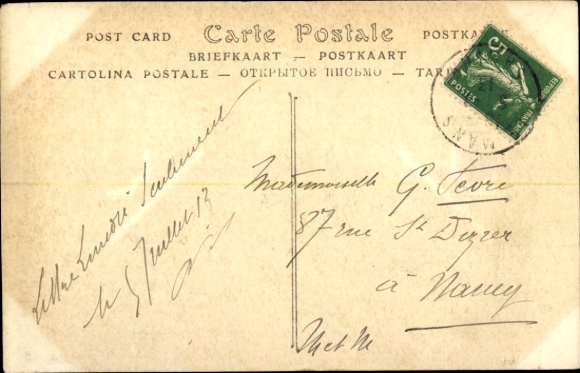 POST CARD Carte Postale POSTKARTE
BRIEFKAART — POSTKAART
CARTOLINA POSTALE — ОТКРЫТОЕ ПИСЬМО —
5
POSTES
MANS
Lettre Seulement
le 5 Juillet 13
Mademoiselle G. Fevre
87 rue St Dizier
à Nancy
M et M